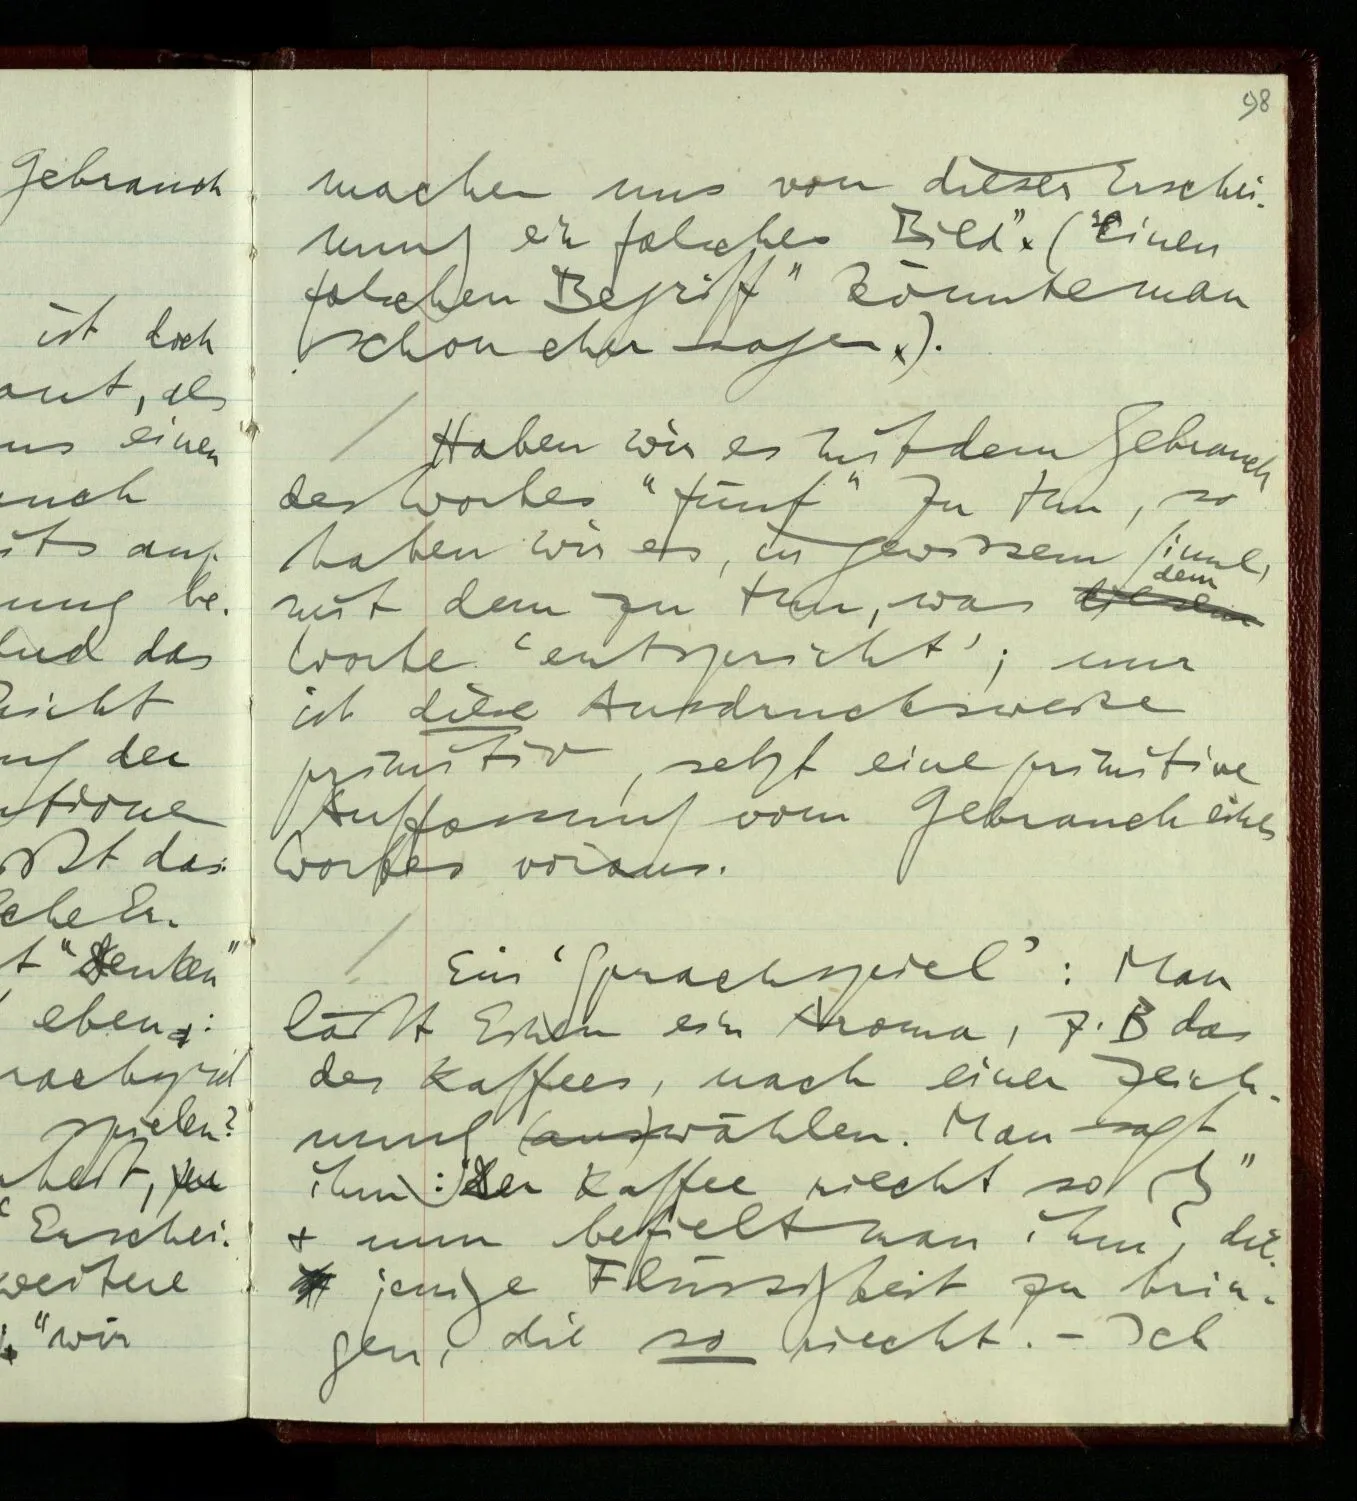 Gebrauch
ist doch
als
uns einen
auch
auf
be-
und das
nicht
der
das
sche Er-
"Denken"
eben:
spielen?
Erschei-
weitere
"wir
98
machen uns von dieser Erschei-
nung ein falsches Bild". ("einen
falschen Begriff" könnte man
schon eher sagen.).
/ Haben wir es mit dem Gebrauch
des Wortes "fünf" zu tun, so
haben wir es, in gewissem Sinne,
mit dem zu tun, was diesem dem
Worte 'entspricht'; nur
ist diese Ausdrucksweise
primitiv, setzt eine primitive
Auffassung vom Gebrauch eines
Wortes voraus.
/ Ein 'Sprachspiel': Man
läßt Einen ein Aroma, z.B das
des Kaffees, nach einer Zeich-
nung (aus)wählen. Man sagt
ihm: "Der Kaffee riecht so"
+ nun befielt man ihm, die-
jenige Flüssigkeit zu brin-
gen, die so riecht. – Ich